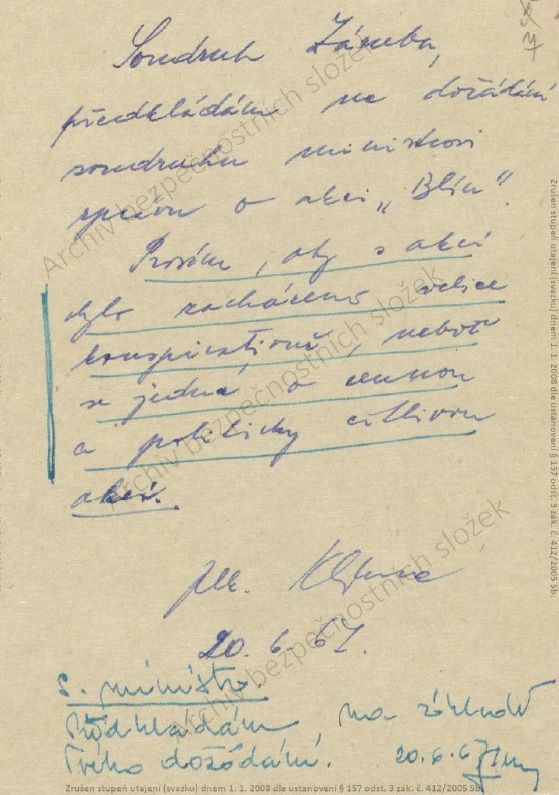 Soudruh Záruba,
předkládám na dožádání
soudruhu ministrovi
zprávu o akci „Blin".
Prosím, aby s akcí
bylo zacházeno velice
konspirativně, neboť
se jedná o cennou
a politicky citlivou
akci.
plk.
20. 6. 67.
s. ministr.
Předkládám, na základě
Tvého dožádání. 20.6.67
Archiv bezpečnostních složek
Archiv bezpečnostních složek
Archiv bezpečnostních složek
Zrušen stupeň utajení (svazku) dnem 1. 1. 2008 dle ustanovení § 157 odst. 3 zák. č. 412/2005 Sb.
Zrušen stupeň utajení (svazku) dnem 1. 1. 2008 dle ustanovení § 157 odst. 3 zák. č. 412/2005 Sb.